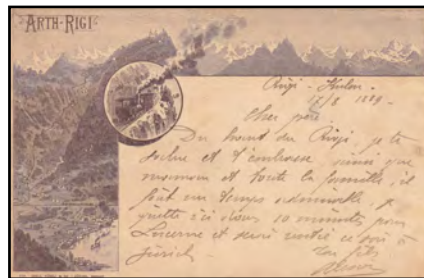 ARTH-RIGI
Rigi - Kulm
17/8 1889.
Cher père
Du haut du Rigi, je te
salue et t'embrasse, ainsi que
maman et toute la famille, il
fait un temps admirable, je
quitte ici dans 10 minutes pour
Lucerne et serai rentré ce soir à
Zürich
Ton fils